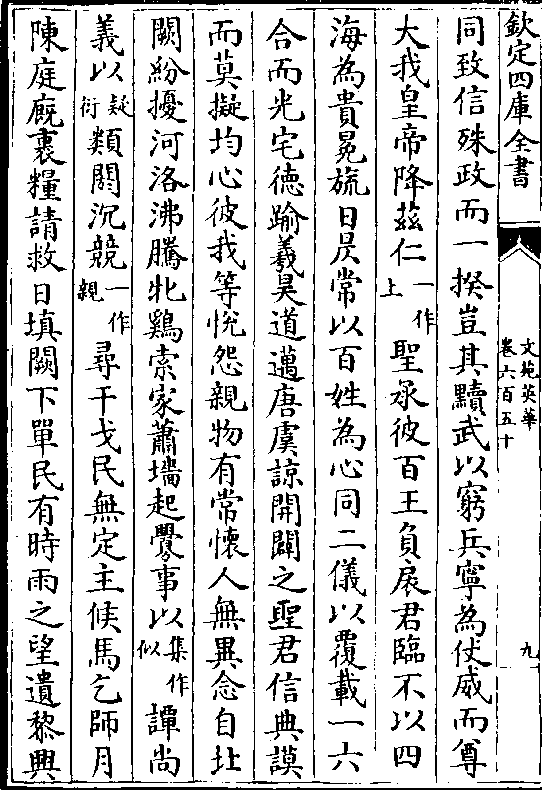 欽定四庫全書
文苑英華
卷六百五十
九
同致信殊政而一揆豈其黷武以窮兵寧為仗威而尊
大我皇帝降茲仁一作上聖承彼百王負扆君臨不以四
海為貴冕旒日昃常以百姓為心同二儀以覆載一六
合而光宅德踰羲昊道邁唐虞諒開闢之聖君信典謨
而莫擬均心彼我等恱怨親物有常懷人無異念自北
闕紛擾河洛沸騰牝鷄索家蕭墻起釁事以集作似譚尚
義以疑衍類閼沉競一作親尋干戈民無定主候馬乞師月
陳庭廐裹糧請救日填闕下單民有時雨之望遺黎興